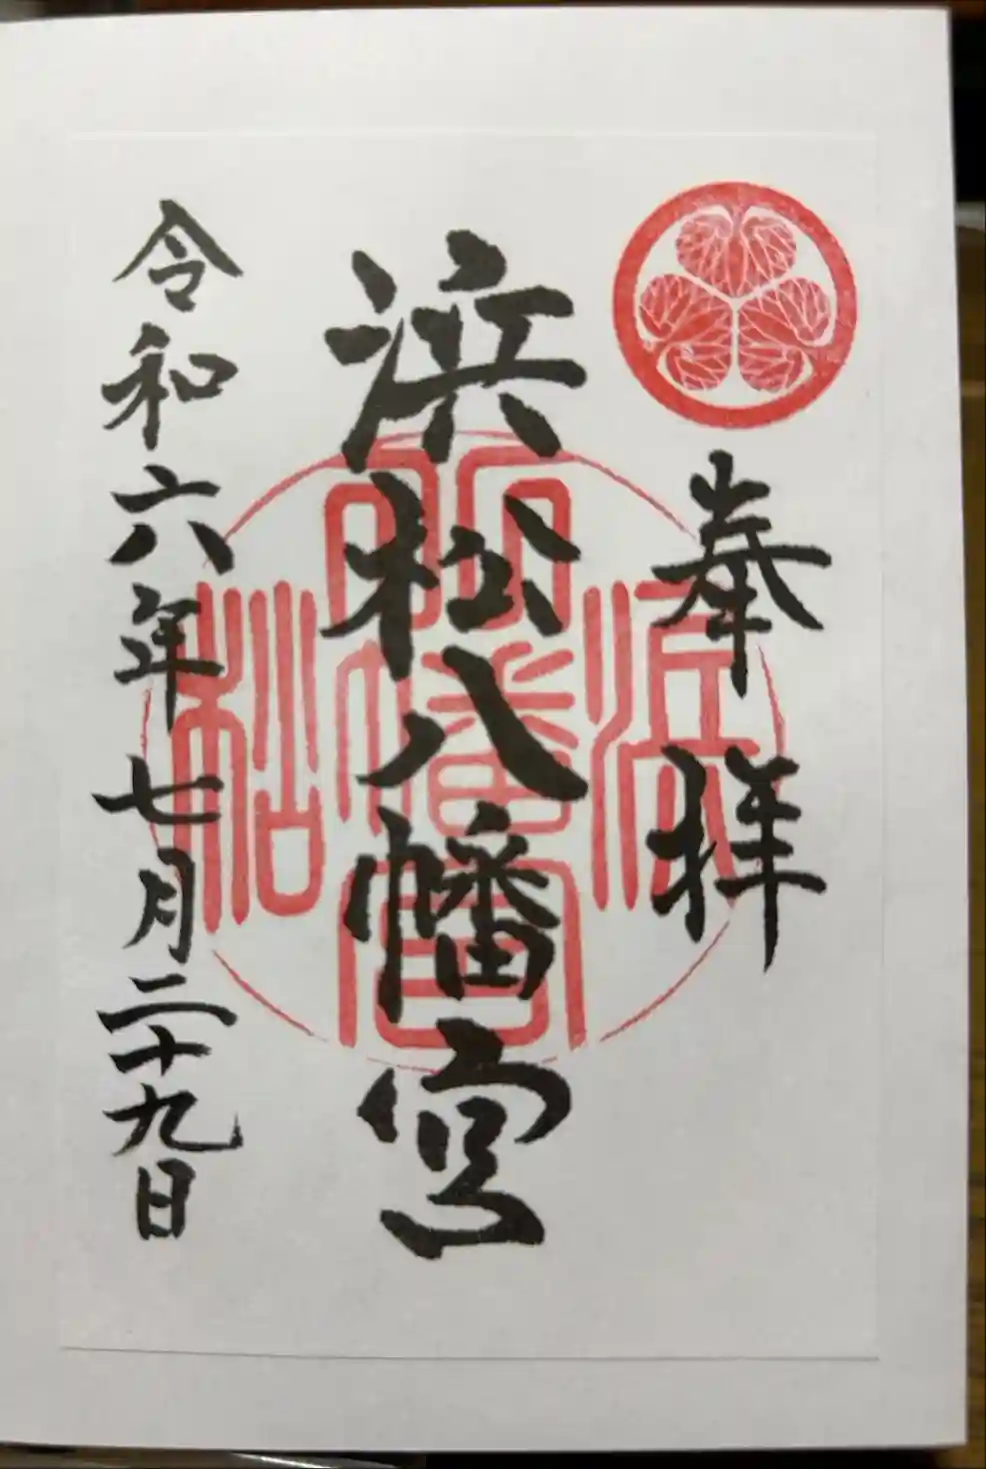 奉拝
浜松八幡宮
令和六年七月二十九日
浜松八幡宮